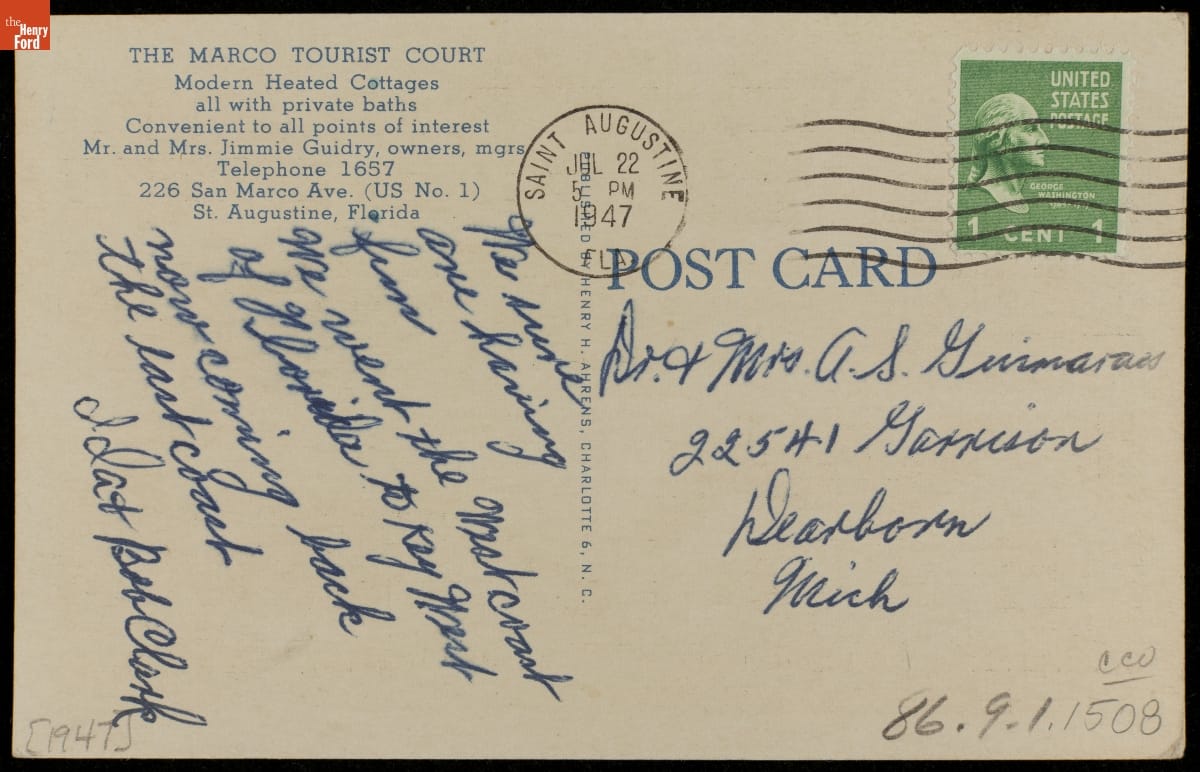 the
Henry
Ford
THE MARCO TOURIST COURT
Modern Heated Cottages
all with private baths
Convenient to all points of interest
Mr. and Mrs. Jimmie Guidry, owners, mgrs
Telephone 1657
226 San Marco Ave. (US No. 1)
St. Augustine, Florida
We sure
are having
fun
We went the West coast
of Florida to Key West
now coming back
the east coast
Bob Clark
PUBLISHED BY HENRY H. AHRENS, CHARLOTTE 6, N. C.
SAINT AUGUSTINE
JUL 22
5 PM
1947
FLA
UNITED
STATES
POSTAGE
GEORGE
WASHINGTON
1 CENT 1
POST CARD
Dr. & Mrs. A. S. Guimaraes
22541 Garrison
Dearborn
Mich
cco
86.9.1.1508
[1947]